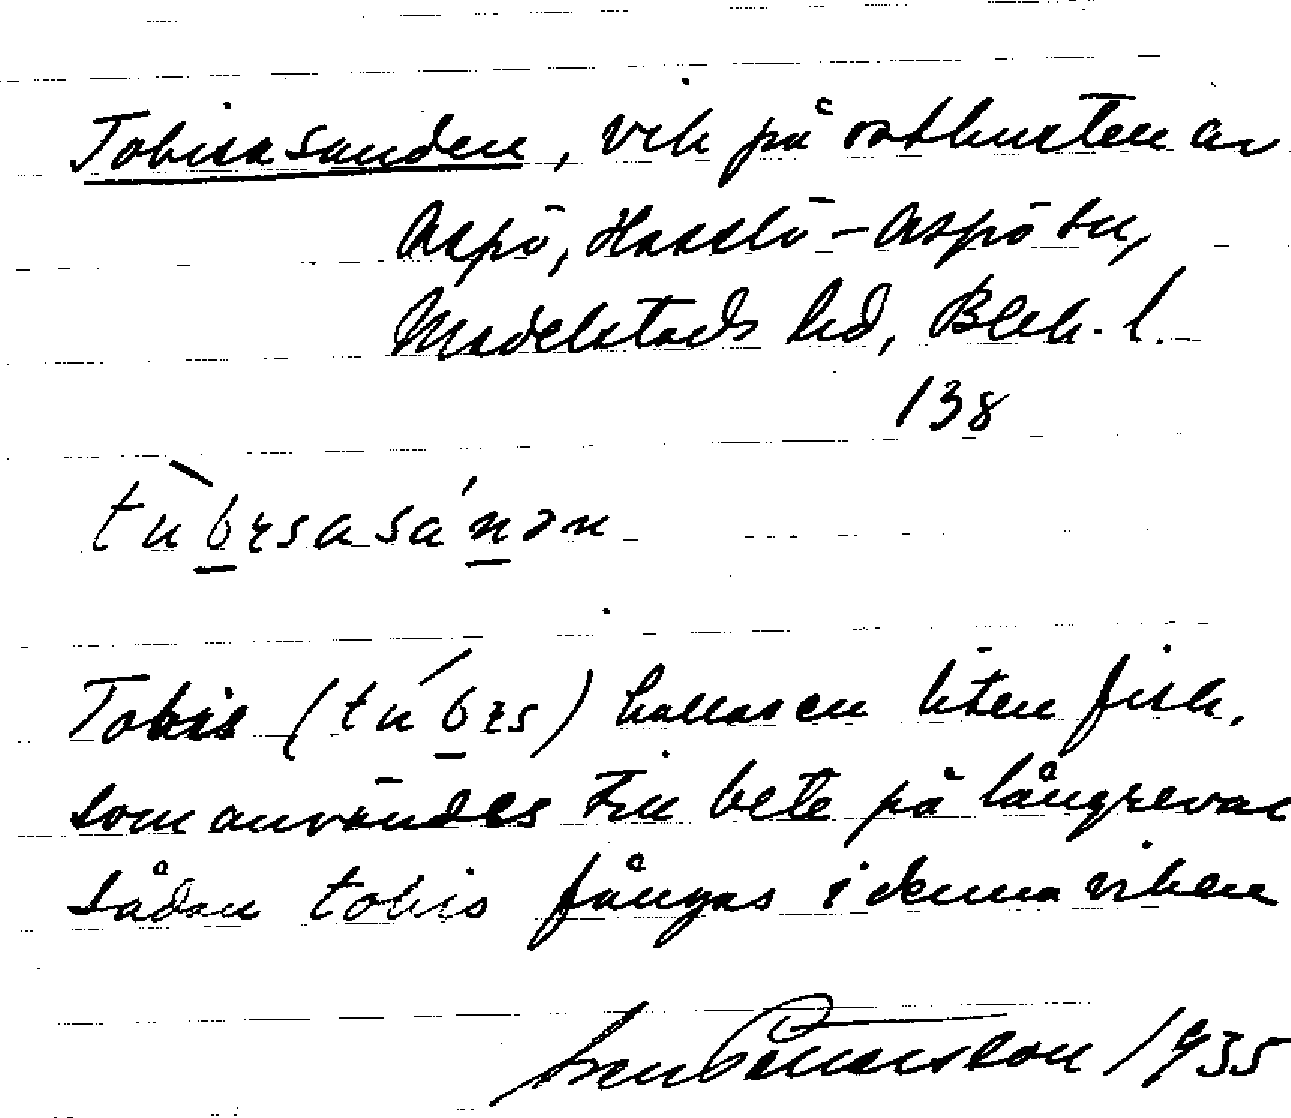 Tobisasanden, vik på ostkusten av
Aspö, Hasslö-Aspö sn,
Medelstads hd, Blek. l.
138
tùbɪsasánən
Tobis (túbɪs) kallas en liten fisk,
som användes till bete på långrevar
Sådan tobis fångas i denna viken
Sven 1935